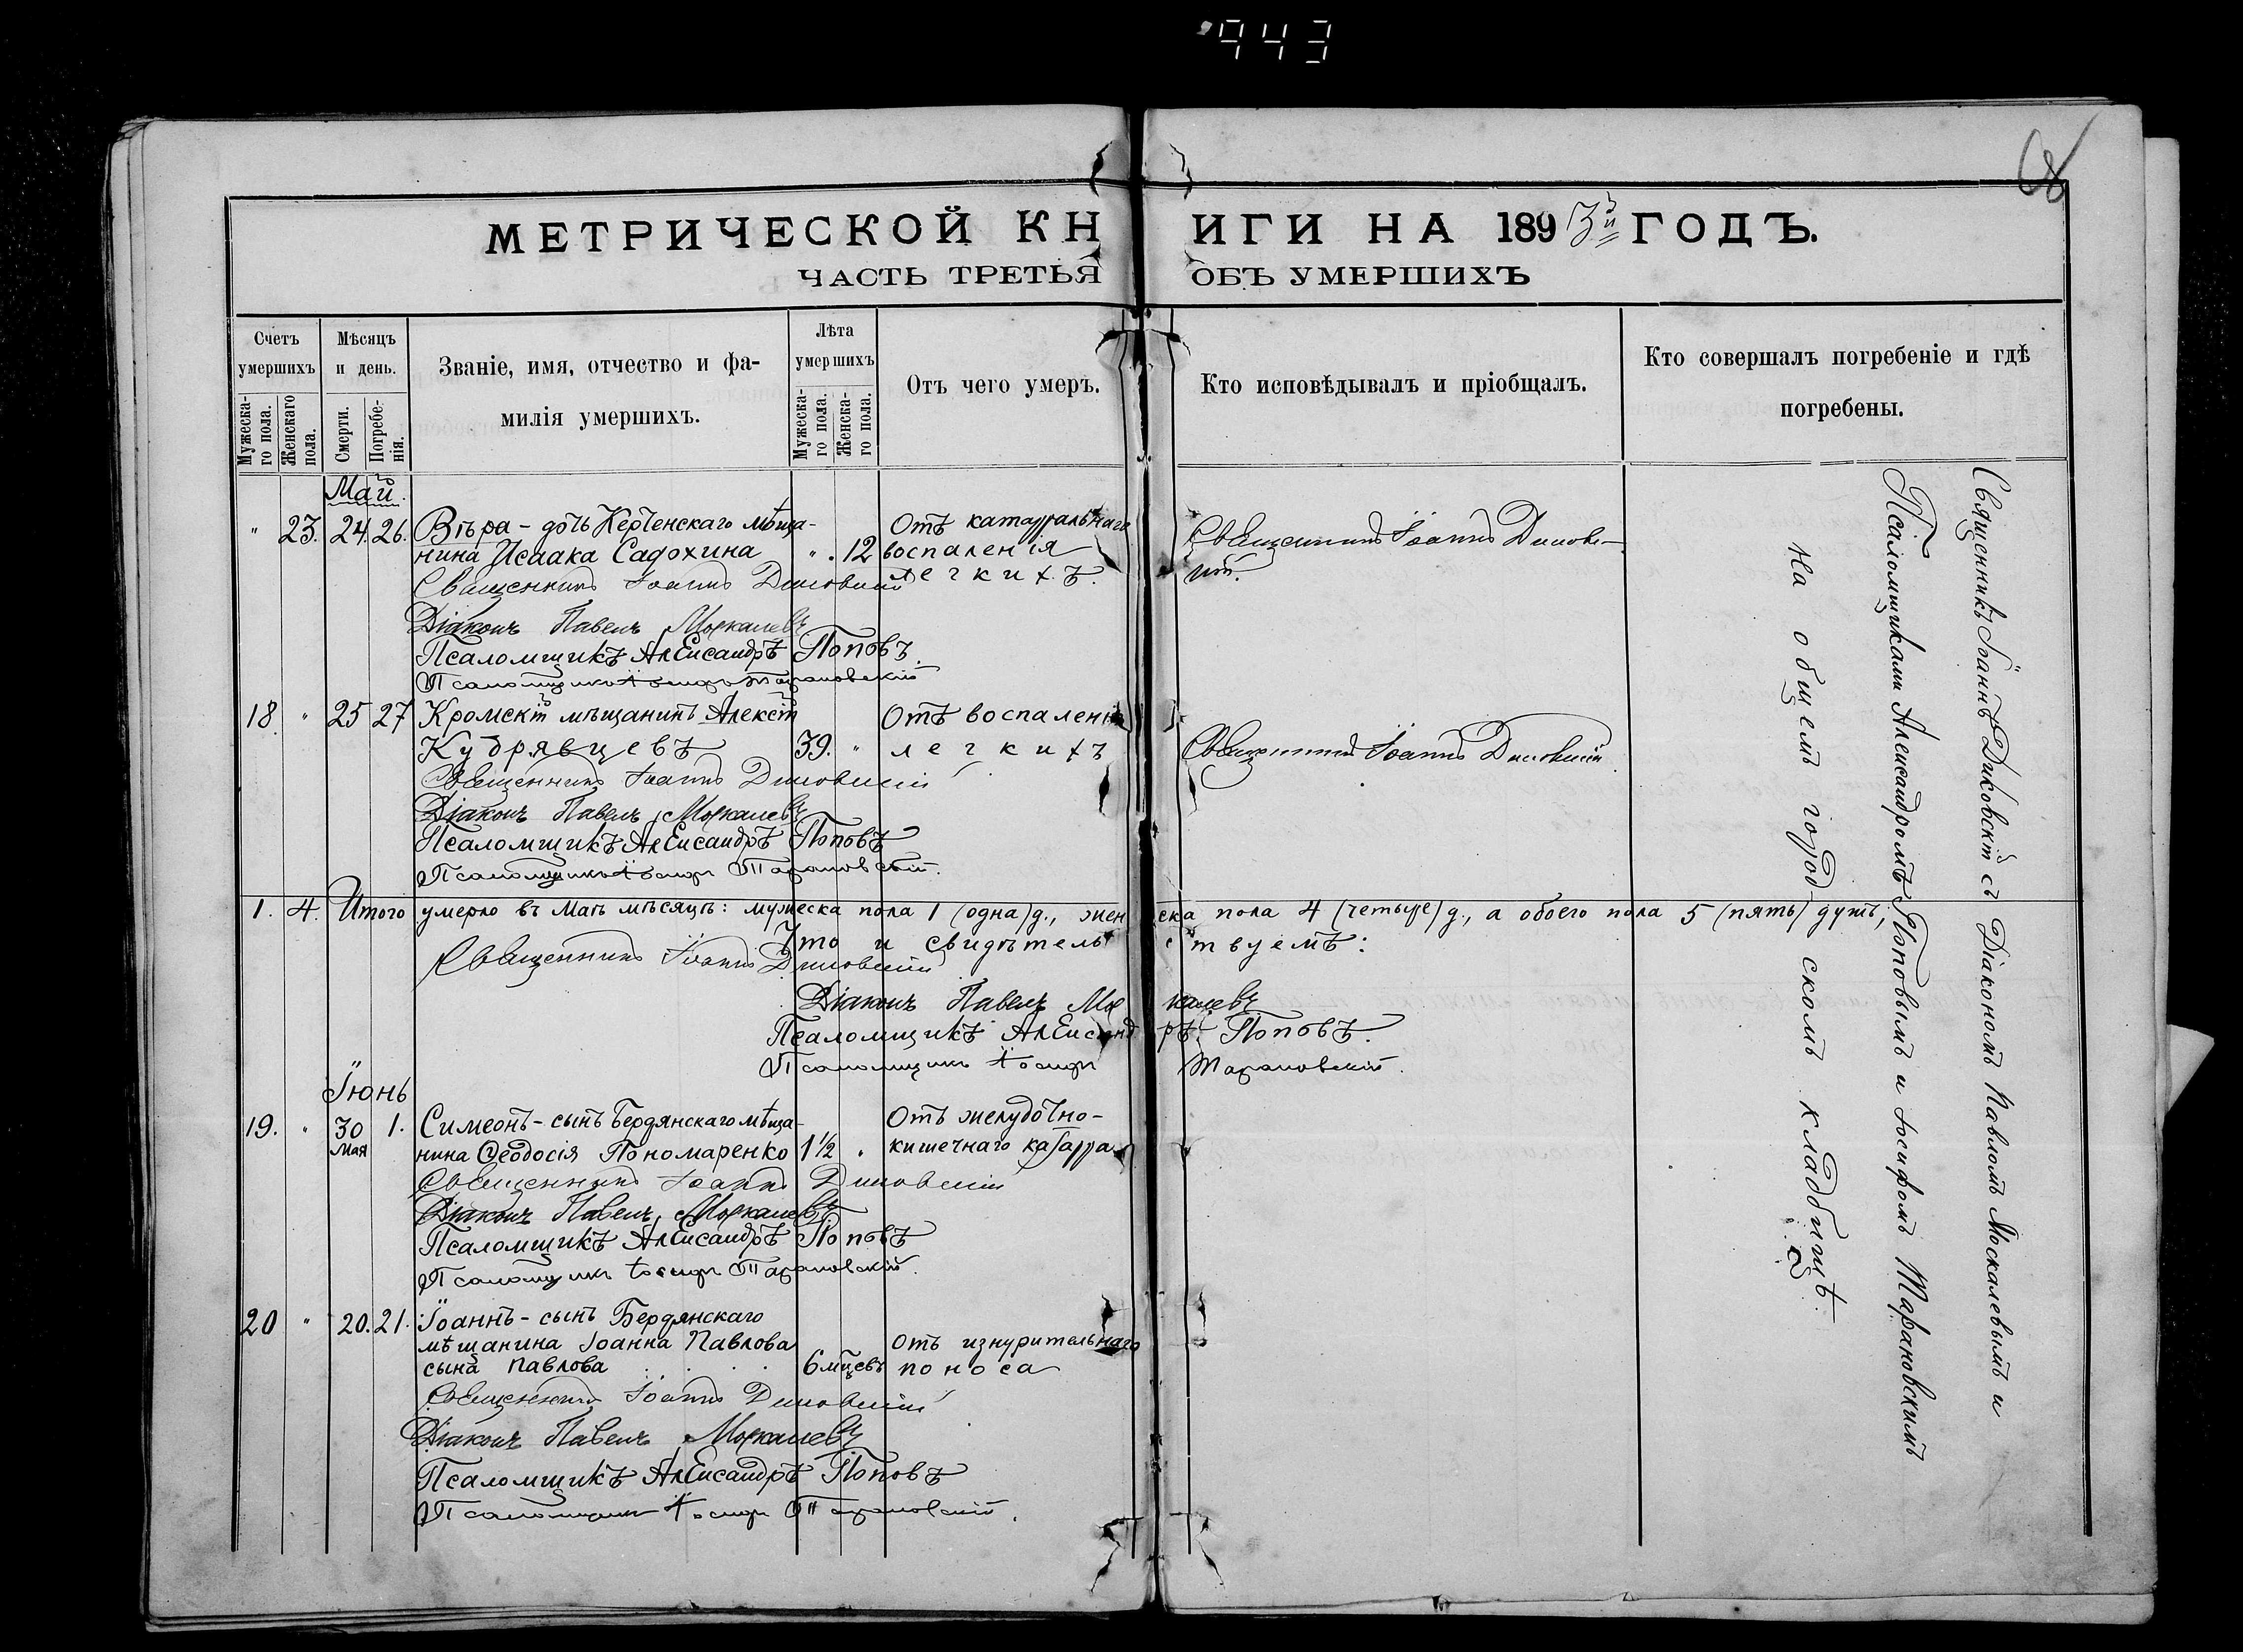 943
68
МЕТРИЧЕСКОЙ КНИГИ НА 1893й ГОДЪ.
ЧАСТЬ ТРЕТЬЯ ОБЪ УМЕРШИХЪ
Счетъ умершихъ
Мужеска-го пола.
Женскаго пола.
Мѣсяцъ и день.
Смерти.
Погребе-нія.
Званіе, имя, отчество и фа-
милія умершихъ.
Лѣта умершихъ
Мужеска-го пола.
Женска-го пола.
Отъ чего умеръ.
Кто исповѣдывалъ и пріобщалъ.
Кто совершалъ погребеніе и гдѣ
погребены.
Май
" 23. 24. 26. Вѣра - дочь Керченскаго мѣща- Отъ катарральнаго Священникъ Іоаннъ Диковс-
нина Исаака Садохина " . 12 воспаленія кій.
легкихъ.
Священникъ Іоаннъ Диковскій
Діаконъ Павелъ Москалевъ
Псаломщикъ Александръ Поповъ.
Псаломщикъ Іосифъ Тарановскій
18. " 25 27 Кромскій мѣщанинъ Алексій Отъ воспаленія
Кудрявцевъ 39. " легкихъ Священникъ Іоаннъ Диковскій
Священникъ Іоаннъ Диковскій
Діаконъ Павелъ Москалевъ
Псаломщикъ Александръ Поповъ
Псаломщикъ Іосифъ Тарановскій.
1. 4. Итого умерло въ Маѣ мѣсяцѣ: мужеска пола 1 (одна) д., женска пола 4 (четыре) д., а обоего пола 5 (пять) душъ;
Что и свидѣтельствуемъ:
Священникъ Іоаннъ Диковскій
Діаконъ Павелъ Москалевъ
Псаломщикъ Александръ Поповъ.
Псаломщикъ Іосифъ Тарановскій.
Іюнь
19. " 30 1. Симеонъ - сынъ Бердянскаго мѣща- Отъ желудочно-
мая нина Ѳеодосія Пономаренко 1½ " кишечнаго катарра
Священникъ Іоаннъ Диковскій
Діаконъ Павелъ Москалевъ
Псаломщикъ Александръ Поповъ
Псаломщикъ Іосифъ Тарановскій.
20 " 20. 21. Іоаннъ - сынъ Бердянскаго
мѣщанина Іоанна Павлова Отъ изнурительнаго
сына Павлова 6 мцевъ поноса
Священникъ Іоаннъ Диковскій
Діаконъ Павелъ Москалевъ
Псаломщикъ Александръ Поповъ
Псаломщикъ Іосифъ Тарановскій.
Священникъ Іоаннъ Диковскій съ Діакономъ Павломъ Москалевымъ и
Псаломщиками Александромъ Поповымъ и Іосифомъ Тарановскимъ
На общемъ городскомъ кладбищѣ.